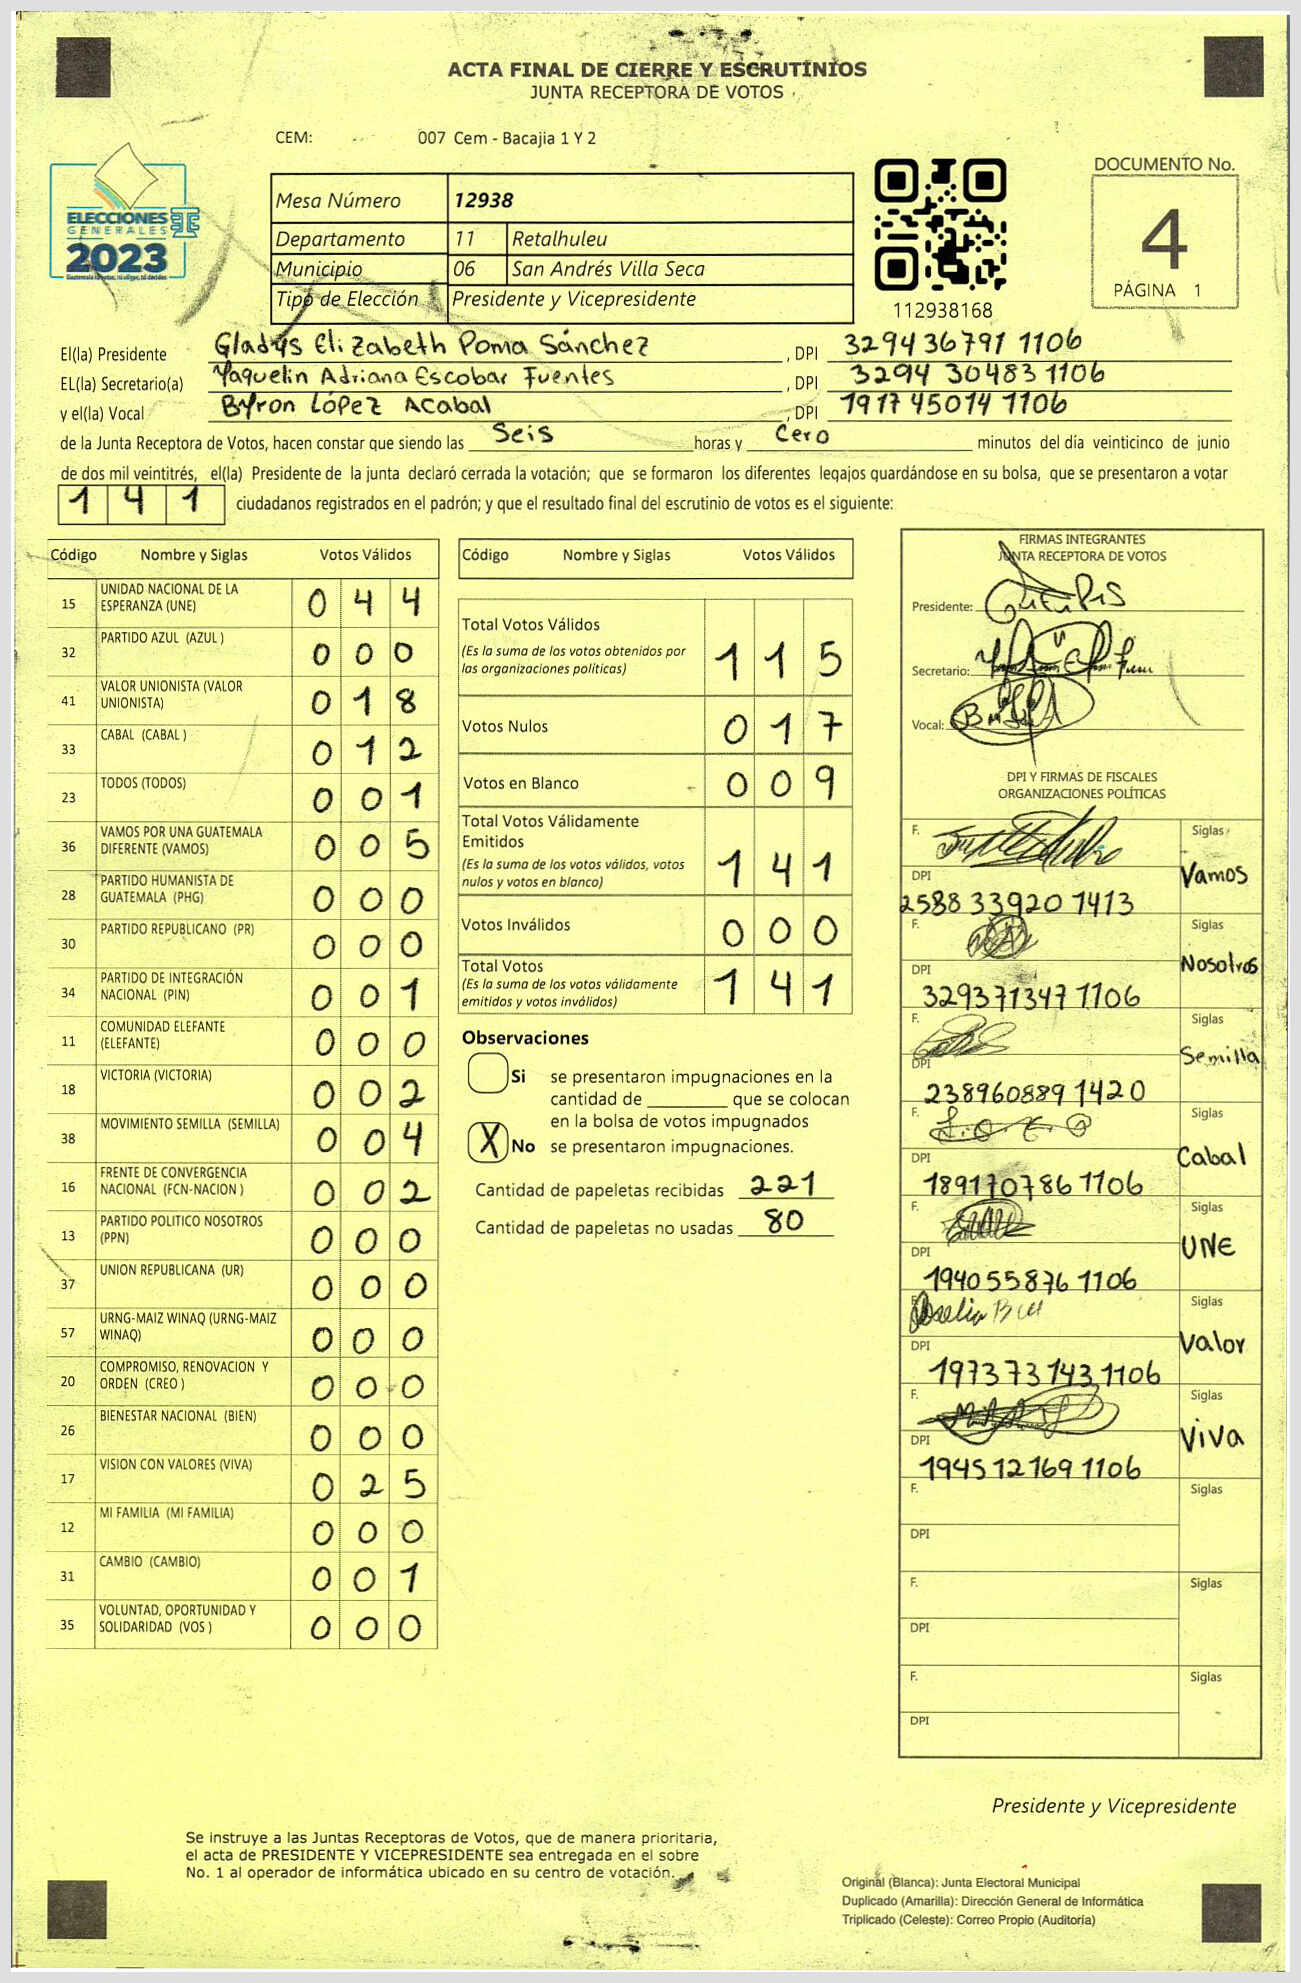 ACTA FINAL DE CIERRE Y ESCRUTINIOS
JUNTA RECEPTORA DE VOTOS
CEM: 007 Cem - Bacajia 1 Y 2
ELECCIONES
GENERALES
2023
Mesa Número 12938
Departamento 11 Retalhuleu
Municipio 06 San Andrés Villa Seca
Tipo de Elección Presidente y Vicepresidente
112938168
DOCUMENTO No.
4
PÁGINA 1
El(la) Presidente Gladys Elizabeth Poma Sánchez , DPI 3294 36791 1106
EL(la) Secretario(a) Yaquelin Adriana Escobar Fuentes , DPI 3294 30483 1106
y el(la) Vocal Byron López Acabal , DPI 1917 45014 1106
de la Junta Receptora de Votos, hacen constar que siendo las Seis horas y Cero minutos del día veinticinco de junio
de dos mil veintitrés, el(la) Presidente de la junta declaró cerrada la votación; que se formaron los diferentes legajos quardándose en su bolsa, que se presentaron a votar
1 4 1 ciudadanos registrados en el padrón; y que el resultado final del escrutinio de votos es el siguiente:
Código Nombre y Siglas Votos Válidos
15 UNIDAD NACIONAL DE LA ESPERANZA (UNE) 0 4 4
32 PARTIDO AZUL (AZUL ) 0 0 0
41 VALOR UNIONISTA (VALOR UNIONISTA) 0 1 8
33 CABAL (CABAL ) 0 1 2
23 TODOS (TODOS) 0 0 1
36 VAMOS POR UNA GUATEMALA DIFERENTE (VAMOS) 0 0 5
28 PARTIDO HUMANISTA DE GUATEMALA (PHG) 0 0 0
30 PARTIDO REPUBLICANO (PR) 0 0 0
34 PARTIDO DE INTEGRACIÓN NACIONAL (PIN) 0 0 1
11 COMUNIDAD ELEFANTE (ELEFANTE) 0 0 0
18 VICTORIA (VICTORIA) 0 0 2
38 MOVIMIENTO SEMILLA (SEMILLA) 0 0 4
16 FRENTE DE CONVERGENCIA NACIONAL (FCN-NACION ) 0 0 2
13 PARTIDO POLITICO NOSOTROS (PPN) 0 0 0
37 UNION REPUBLICANA (UR) 0 0 0
57 URNG-MAIZ WINAQ (URNG-MAIZ WINAQ) 0 0 0
20 COMPROMISO, RENOVACION Y ORDEN (CREO ) 0 0 0
26 BIENESTAR NACIONAL (BIEN) 0 0 0
17 VISION CON VALORES (VIVA) 0 2 5
12 MI FAMILIA (MI FAMILIA) 0 0 0
31 CAMBIO (CAMBIO) 0 0 1
35 VOLUNTAD, OPORTUNIDAD Y SOLIDARIDAD (VOS ) 0 0 0
Código Nombre y Siglas Votos Válidos
Total Votos Válidos
(Es la suma de los votos obtenidos por
las organizaciones políticas) 1 1 5
Votos Nulos 0 1 7
Votos en Blanco 0 0 9
Total Votos Válidamente
Emitidos
(Es la suma de los votos válidos, votos
nulos y votos en blanco) 1 4 1
Votos Inválidos 0 0 0
Total Votos
(Es la suma de los votos válidamente
emitidos y votos inválidos) 1 4 1
Observaciones
Si se presentaron impugnaciones en la
cantidad de ________ que se colocan
en la bolsa de votos impugnados
X No se presentaron impugnaciones.
Cantidad de papeletas recibidas 221
Cantidad de papeletas no usadas 80
FIRMAS INTEGRANTES
JUNTA RECEPTORA DE VOTOS
Presidente:
Secretario:
Vocal:
DPI Y FIRMAS DE FISCALES
ORGANIZACIONES POLÍTICAS
F. Siglas
DPI Vamos
2588 33920 1413
F. Siglas
DPI Nosotros
329371347 1106
F. Siglas
DPI Semilla
238960889 1420
F. Siglas
DPI Cabal
189170786 1106
F. Siglas
DPI UNE
194055876 1106
F. Siglas
DPI Valor
1973 73143 1106
F. Siglas
DPI Viva
1945 12169 1106
F. Siglas
DPI
F. Siglas
DPI
F. Siglas
DPI
Presidente y Vicepresidente
Se instruye a las Juntas Receptoras de Votos, que de manera prioritaria,
el acta de PRESIDENTE Y VICEPRESIDENTE sea entregada en el sobre
No. 1 al operador de informática ubicado en su centro de votación.
Original (Blanca): Junta Electoral Municipal
Duplicado (Amarilla): Dirección General de Informática
Triplicado (Celeste): Correo Propio (Auditoría)